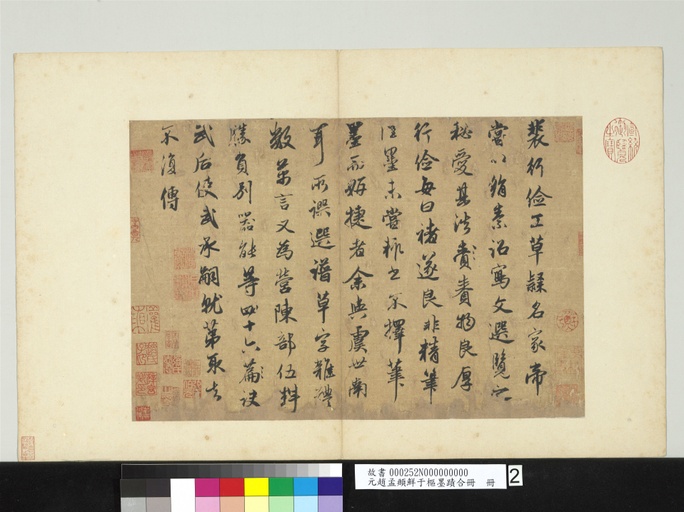 裴行儉工草隸名家帝
嘗以絹素詔寫文選覽之
秘愛其法賚賚物良厚
行儉每曰褚遂良非精筆
佳墨未嘗輒書不擇筆
墨而妍捷者余與虞世南
耳所譔選譜草字雜體
數萬言又為營陳部伍料
勝負別器能等四十六篇訣
武后使武承嗣就第取去
不復傳
故書 000252N000000000
元趙孟頫鮮于樞墨蹟合冊 冊
2